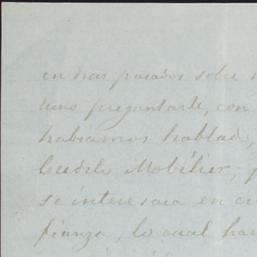 en dias pasados sobre
uno preguntarle, con
habiamos hablad
Credito Mobilier,
se interesara en
fianza, lo cual